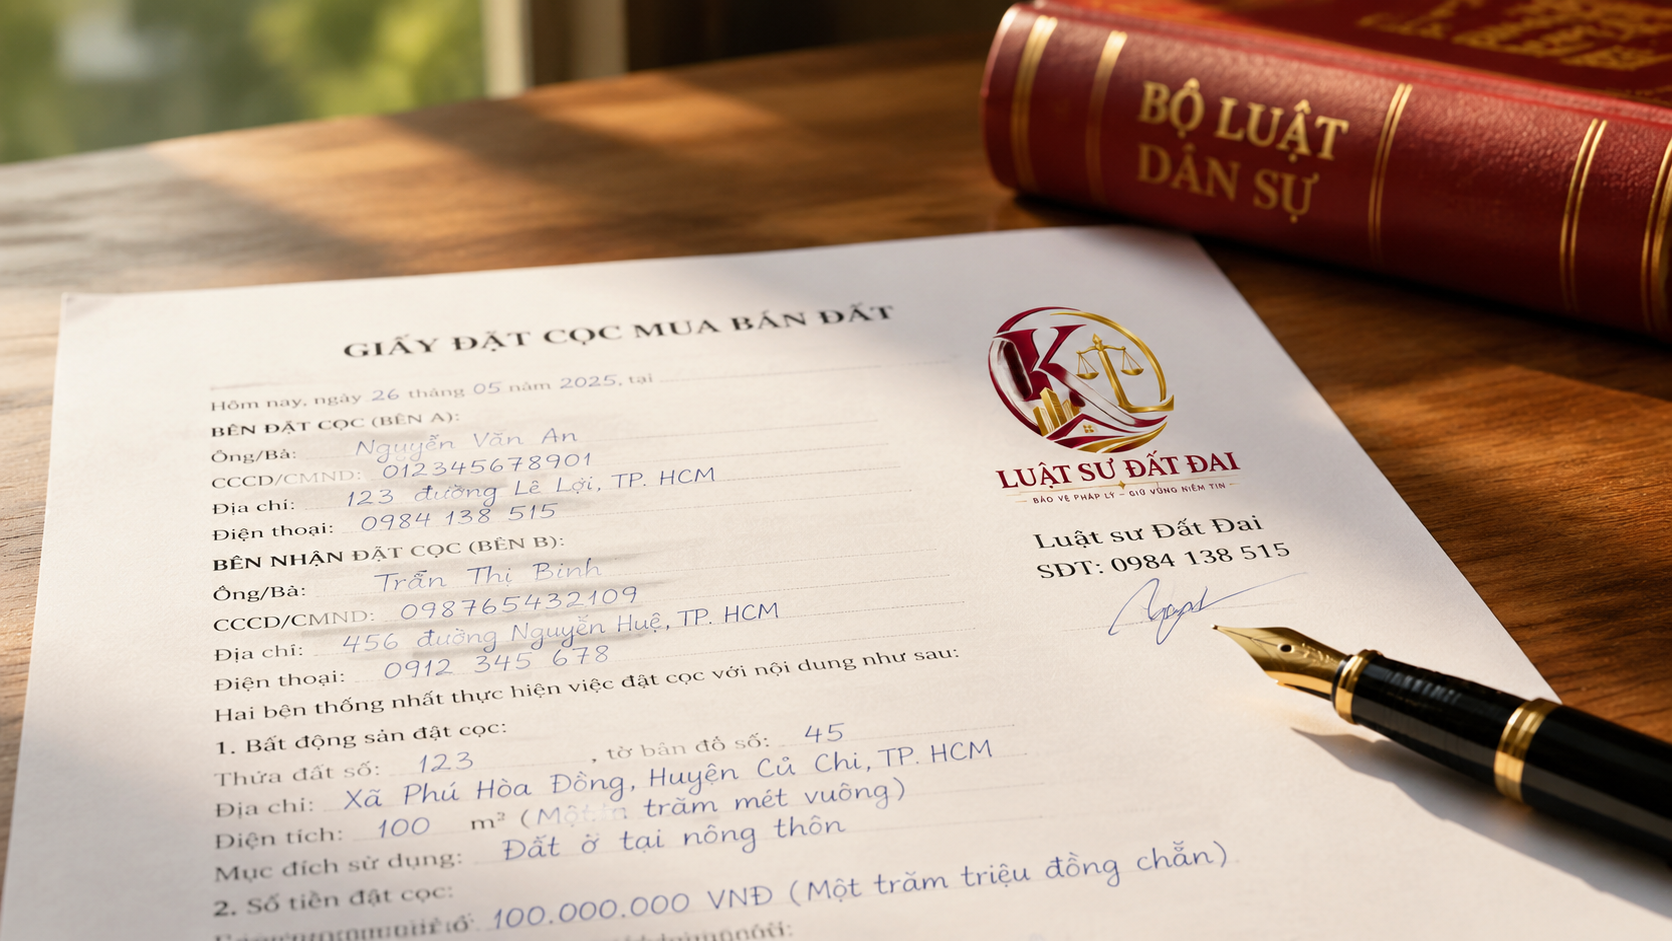 BỘ LUẬT
DÂN SỰ
GIẤY ĐẶT CỌC MUA BÁN ĐẤT
Hôm nay, ngày 26 tháng 05 năm 2025, tại
BÊN ĐẶT CỌC (BÊN A):
Ông/Bà: Nguyễn Văn An
CCCD/CMND: 012345678901
Địa chỉ: 123 đường Lê Lợi, TP. HCM
Điện thoại: 0984 138 515
BÊN NHẬN ĐẶT CỌC (BÊN B):
Ông/Bà: Trần Thị Bình
CCCD/CMND: 098765432109
Địa chỉ: 456 đường Nguyễn Huệ, TP. HCM
Điện thoại: 0912 345 678
Hai bên thống nhất thực hiện việc đặt cọc với nội dung như sau:
1. Bất động sản đặt cọc:
Thửa đất số: 123, tờ bản đồ số: 45
Địa chỉ: Xã Phú Hòa Đồng, Huyện Củ Chi, TP. HCM
Diện tích: 100 m² (Một trăm mét vuông)
Mục đích sử dụng: Đất ở tại nông thôn
2. Số tiền đặt cọc:
100.000.000 VNĐ (Một trăm triệu đồng chẵn)
K
LUẬT SƯ ĐẤT ĐAI
BẢO VỆ PHÁP LÝ – GIỮ VỮNG NIỀM TIN
Luật sư Đất Đai
SĐT: 0984 138 515